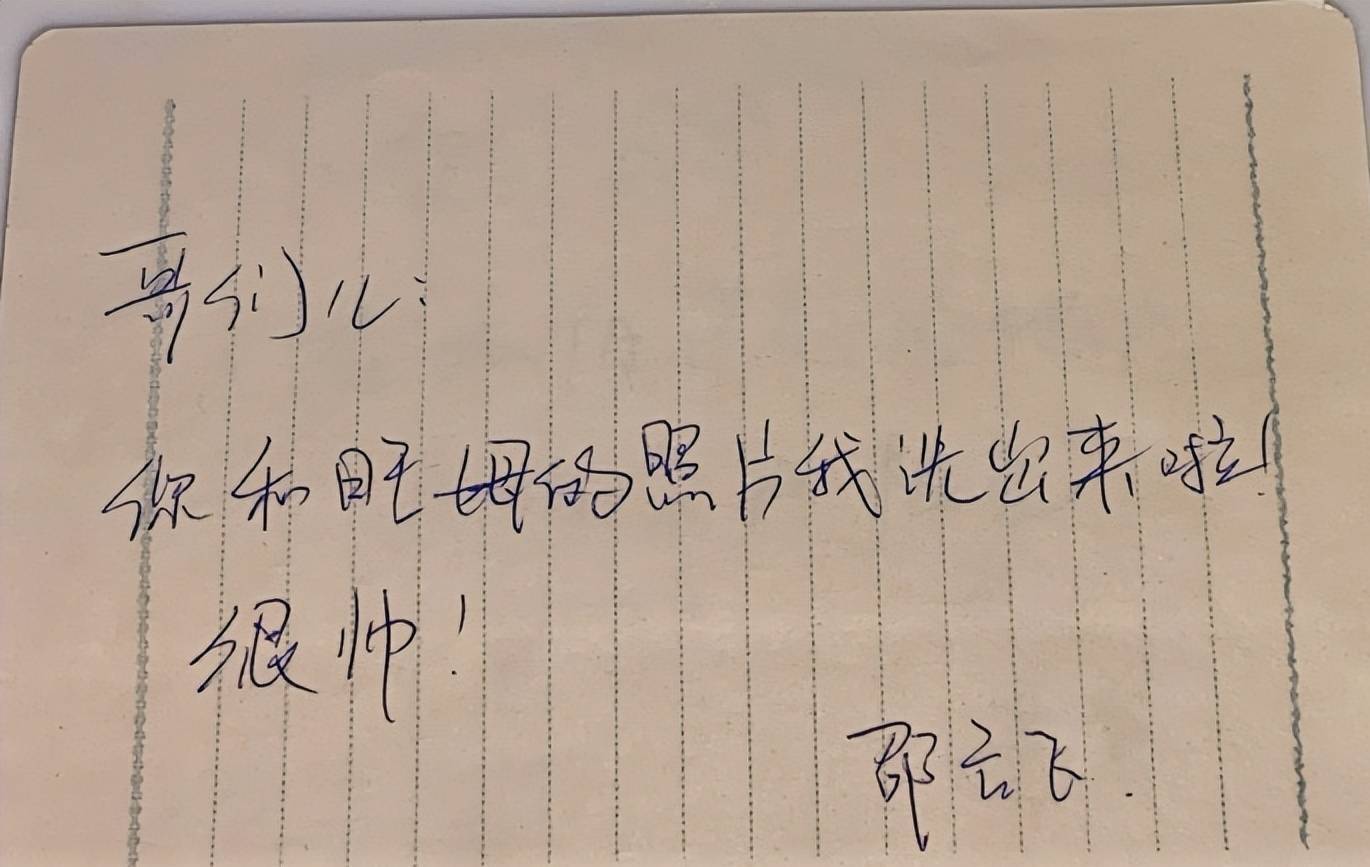 哥们儿:
你和旺姆的照片我洗出来啦!
很帅!
邵云飞.